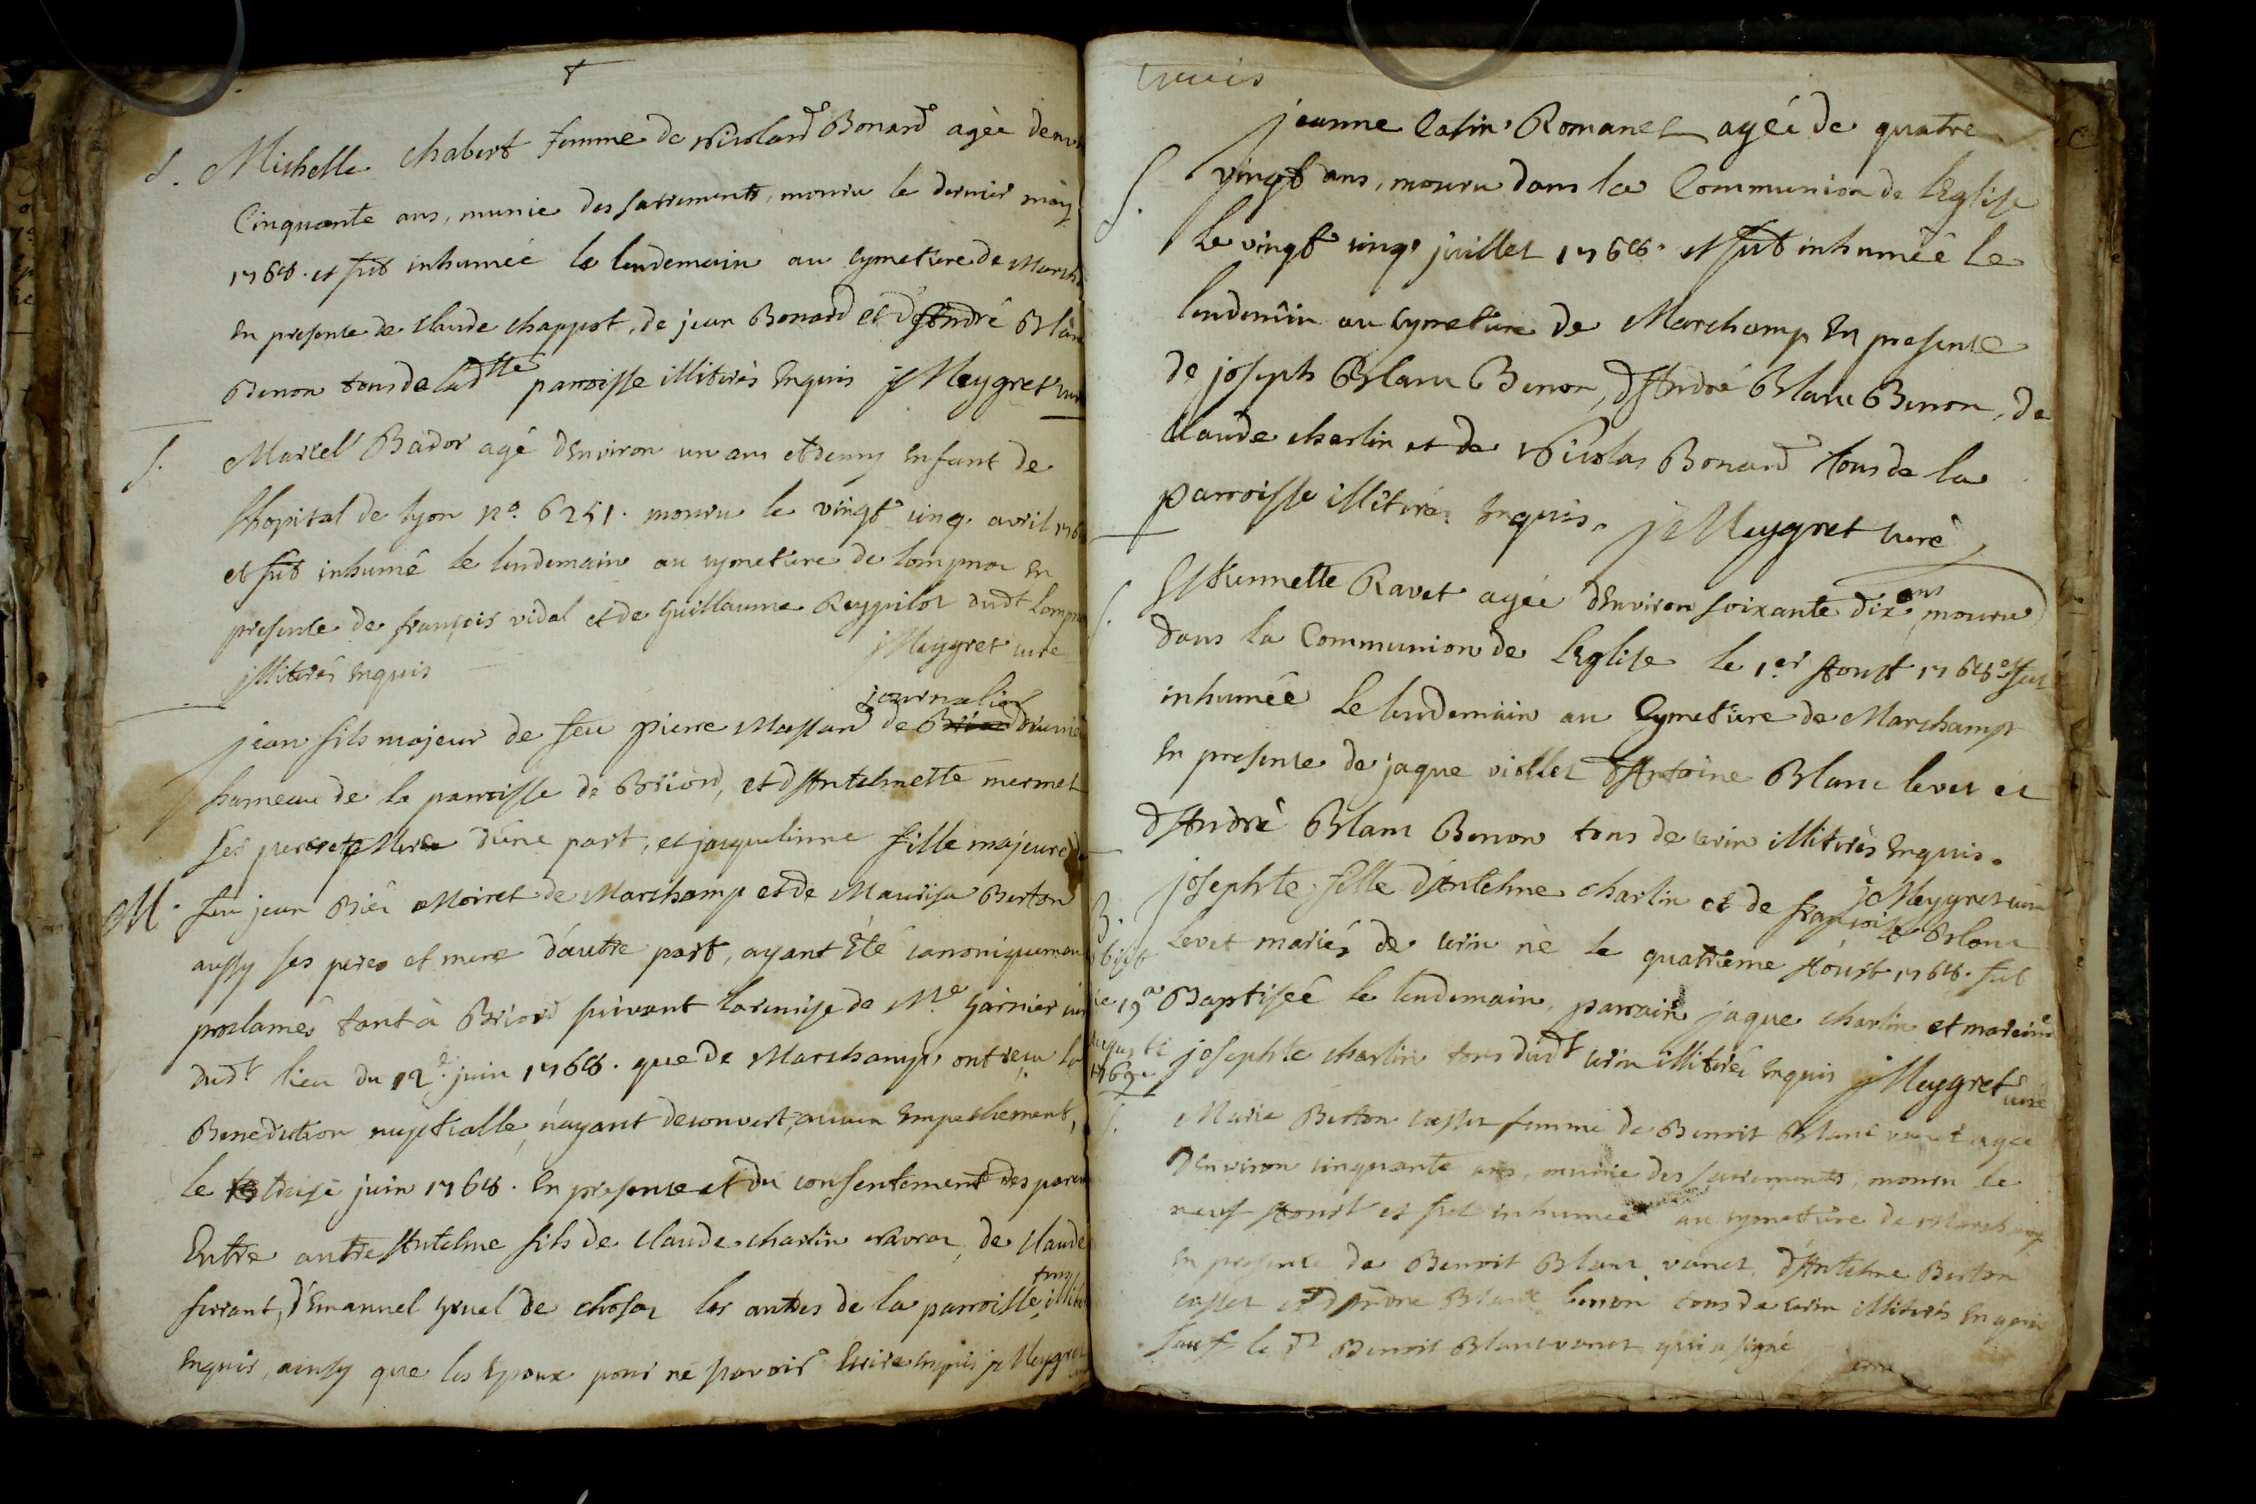 S. Michelle Chabert femme de Nicolard Bonard agèe denvi
Cinquante ans, munie des sacrements, mouru le dernier may
1768. et fut inhumée le lendemain au Cymetiere de March
En presence de Claude Chappot, de jean Bonard et d'André Blan
Benon tous de ladtte parroisse illiterés Enquis je Meygret curé
S. Marcel Bador agé dEnviron un ans et demy Enfant de
lhopital de Lyon no. 6251. mouru le vingt cinq. avril 176
et fut inhumé le lendemain au cymetiere de lompnaz En
presence de françois vidal et de Guillaume Reypilor dudt Lompn
illiterés Enquis Meygret curé
journalier
jean fils majeur de feu pierre Massard de
hameau de la parroisse de Briord, et d'Antelmette mermet
ses pere et Mere d'une part, et jacqueline fille majeure de
M. feu jean Moiret de Marchamp et de Maurisa Berton
aussy ses pere et mere d'autre part, ayant Eté canoniquement
proclamés tant à Briord suivant la remise de Mre Garnier curé
dudt lieu du 12e juin 1768. que de Marchamp, ont reçu la
Benediction nuptialle, n'ayant decouvert, aucun Empechement,
le treise juin 1768. En presence et du consentement des paren
Entre autre Antelme fils de Claude charlin de Claude
ferrant, d'Emanuel gruel de chosaz les autres de la parroisse tous illite
Enquis, ainsy que les Epoux pour ne savoir Ecrire Enquis je Meygret
jeanne Catin Romanet agée de quatre
S. vingt ans, mouru dans la Communion de lEglise
le vingt cinq. juillet 1768. et fut inhumée le
lendemain au Cymetiere de Marchamp En presence
de joseph Blanc Benon, d'André Blanc Benon, de
Claude charlin et de Nicolas Bonard tous de la
parroisse illiterés Enquis. je Meygret curé
S. Etiennette Ravet agée dEnviron soixante dix ans mouru
dans la Communion de lEglise le 1er Aoust 1768. et fut
inhumée le lendemain au Cymetiere de Marchamp
En presence de jaque viollet d'Antoine Blanc levet et
d'André Blanc Benon tous de cerin illiterés Enquis.
je Meygret curé
B. josephte fille d'Antelme charlin et de françoise Blanc
Levet mariés de cerin né le quatrième Aoust 1768. fut
Baptiseé le lendemain, parrain jaque charlin et mareine
josephte charlin tous dudt cerin illiterés Enquis Meygret curé
S. Marie Berton casset femme de Benoit Blanc vanet agée
dEnviron cinquante ans, munie des sacrements, mouru le
neuf Aoust et fut inhumée au cymetiere de Marchamp
En presence de Benoit Blanc vanet, d'Antelme Berton
casset et d'Andre Blanc benon tous de cerin illiterés Enquis
sauf le dt Benoit Blanc vanet qui a signé